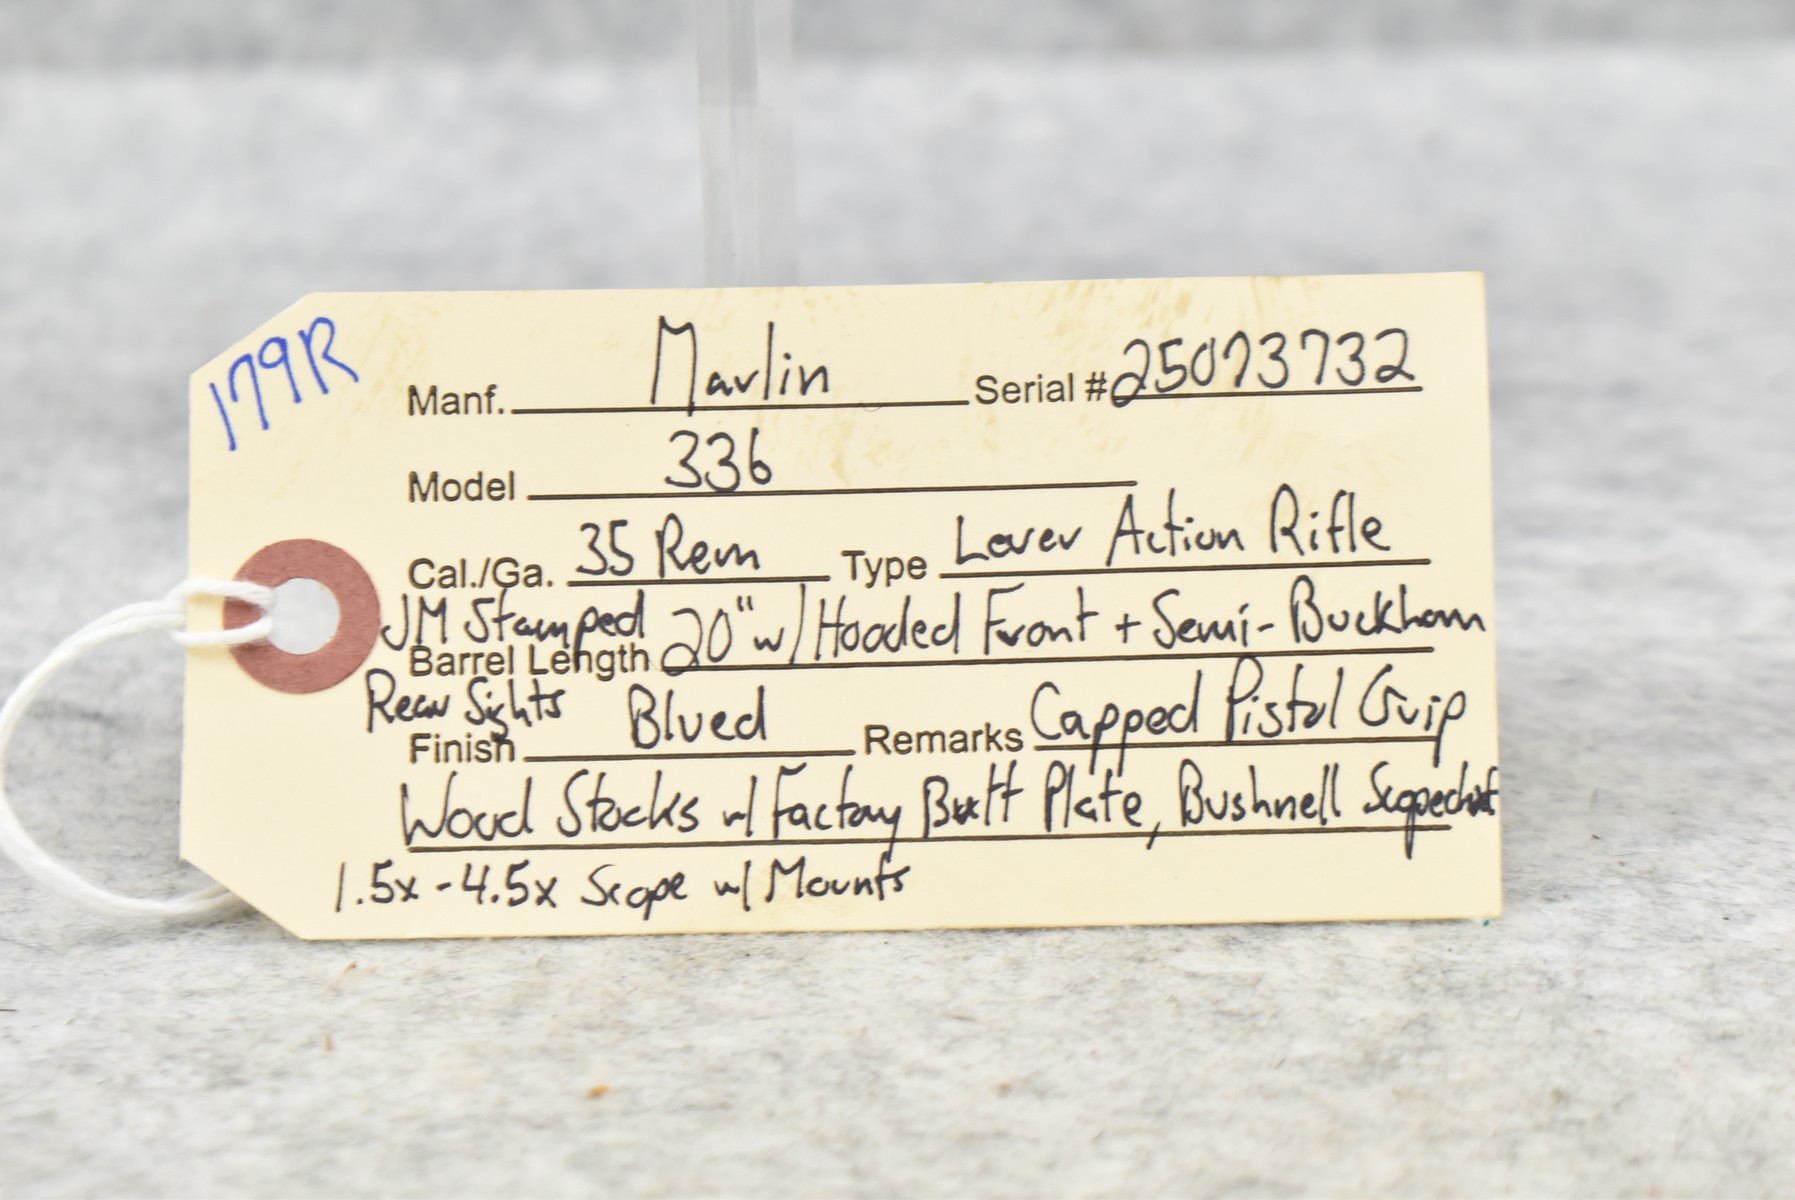 179R
Manf. Marlin Serial # 25073732
Model 336
Cal./Ga. 35 Rem Type Lever Action Rifle
JM Stamped
Barrel Length 20" w/ Hooded Front + Semi-Buckhorn
Rear Sights
Finish Blued Remarks Capped Pistol Grip
Wood Stocks w/ Factory Butt Plate, Bushnell Scopechief
1.5x-4.5x Scope w/ Mounts